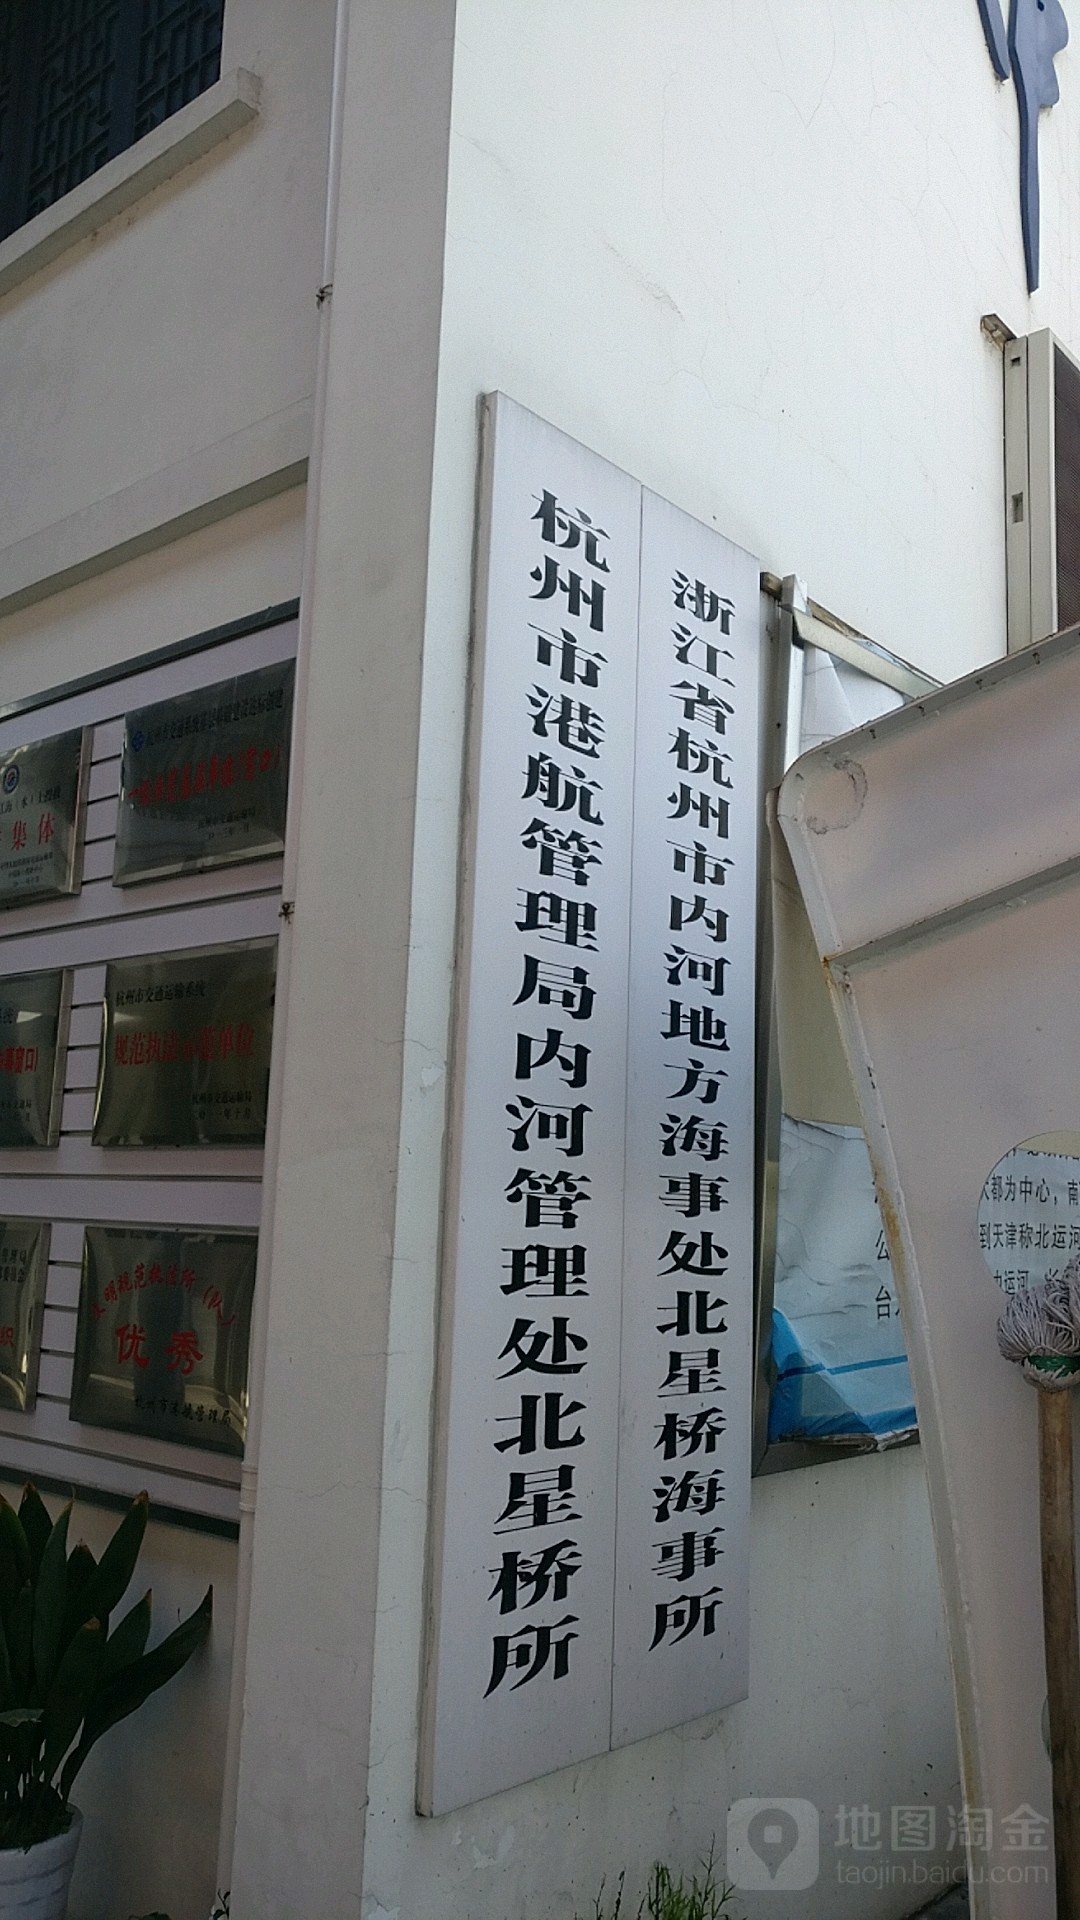 杭州市港航管理局内河管理处北星桥所
浙江省杭州市内河地方海事处北星桥海事所
集体
杭州市交通运输系统
规范执法示范单位
杭州市交通运输局
优秀
杭州市港航管理局
都为中心，南
到天津称北运河
运河
公
台
地图淘金
taojin.baidu.com